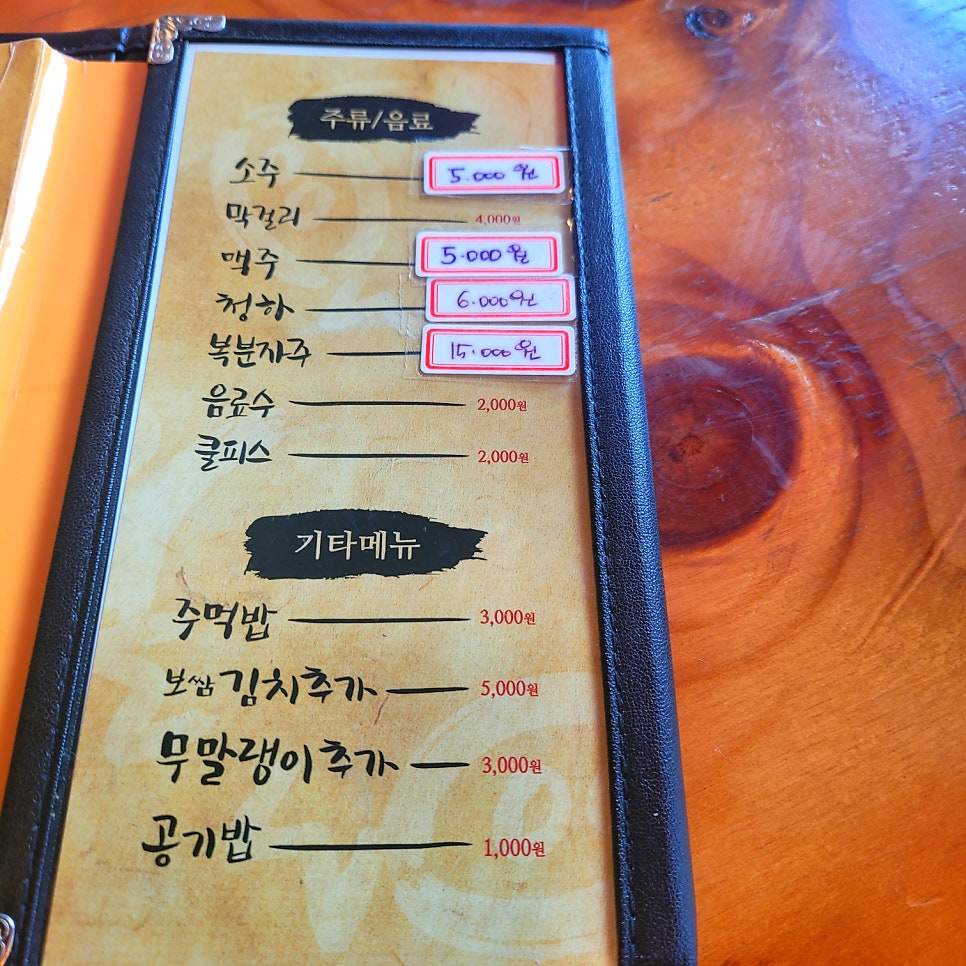 주류/음료
소주 5.000원
막걸리 4,000원
맥주 5.000원
청하 6.000원
복분자주 15.000원
음료수 2,000원
쿨피스 2,000원
기타메뉴
주먹밥 3,000원
보쌈김치추가 5,000원
무말랭이추가 3,000원
공기밥 1,000원